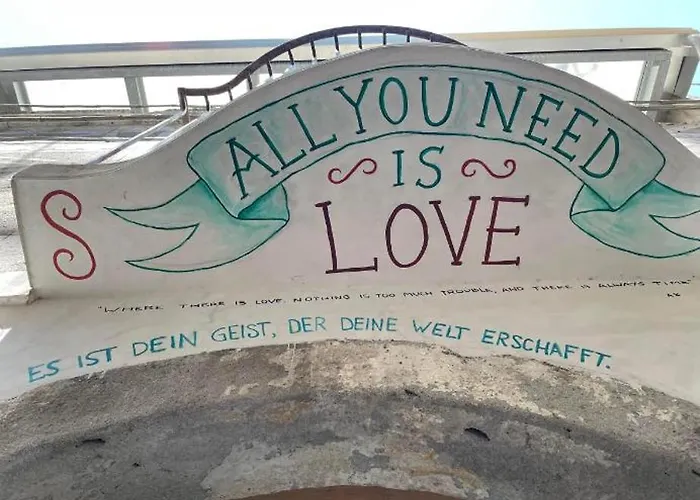 ALL YOU NEED
IS
LOVE
S
"WHERE THERE IS LOVE, NOTHING IS TOO MUCH TROUBLE, AND THERE IS ALWAYS TIME"
ES IST DEIN GEIST, DER DEINE WELT ERSCHAFFT.